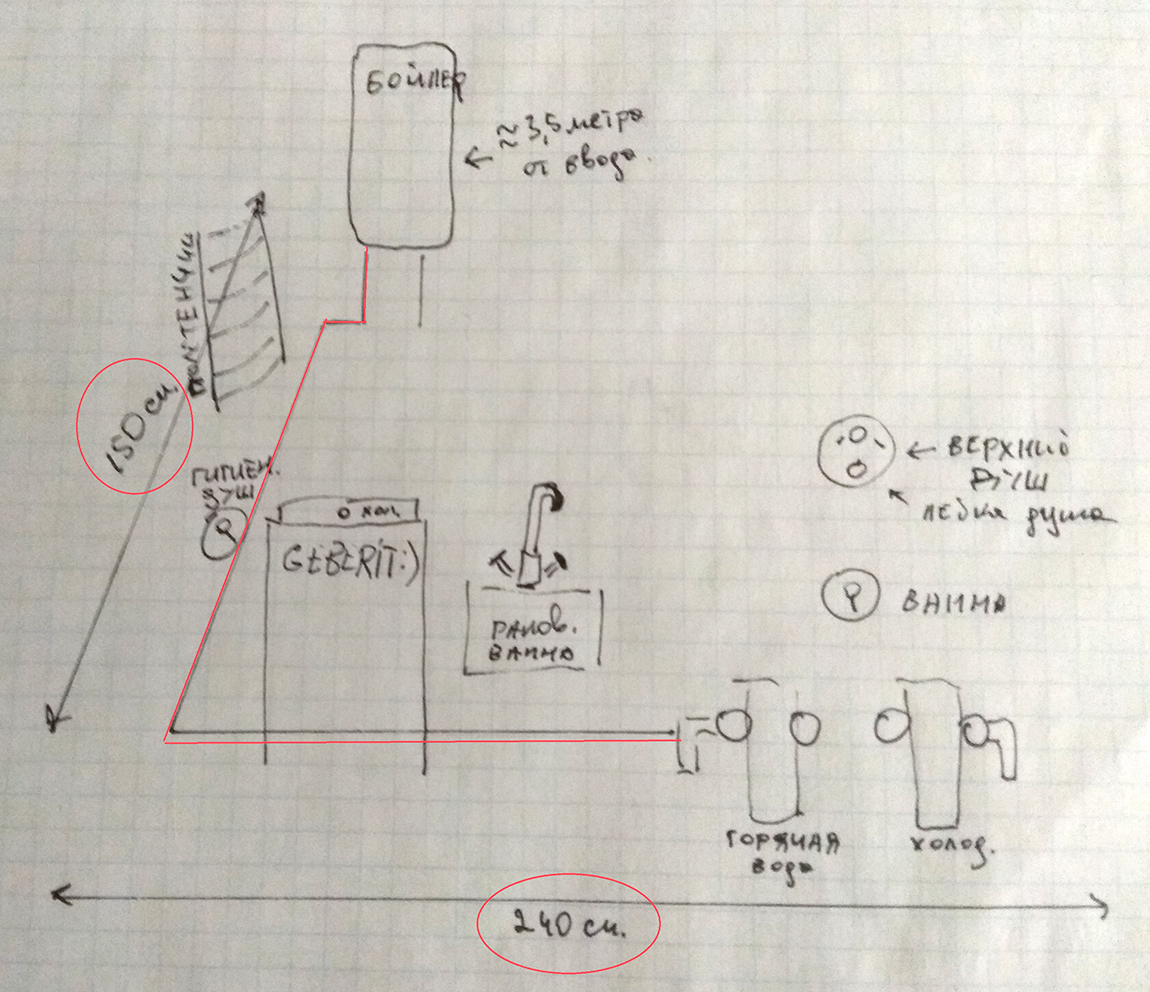 БОЙЛЕР
≈ 3,5 метра
от ввода.
150 см.
ГИГИЕН.
ДУШ
0 хол.
GEBERIT:)
РАКОВ.
ВАННА
← ВЕРХНИЙ
ДУШ
ЛЕЙКА душа
ВАННА
ГОРЯЧАЯ
вода
холод.
240 см.